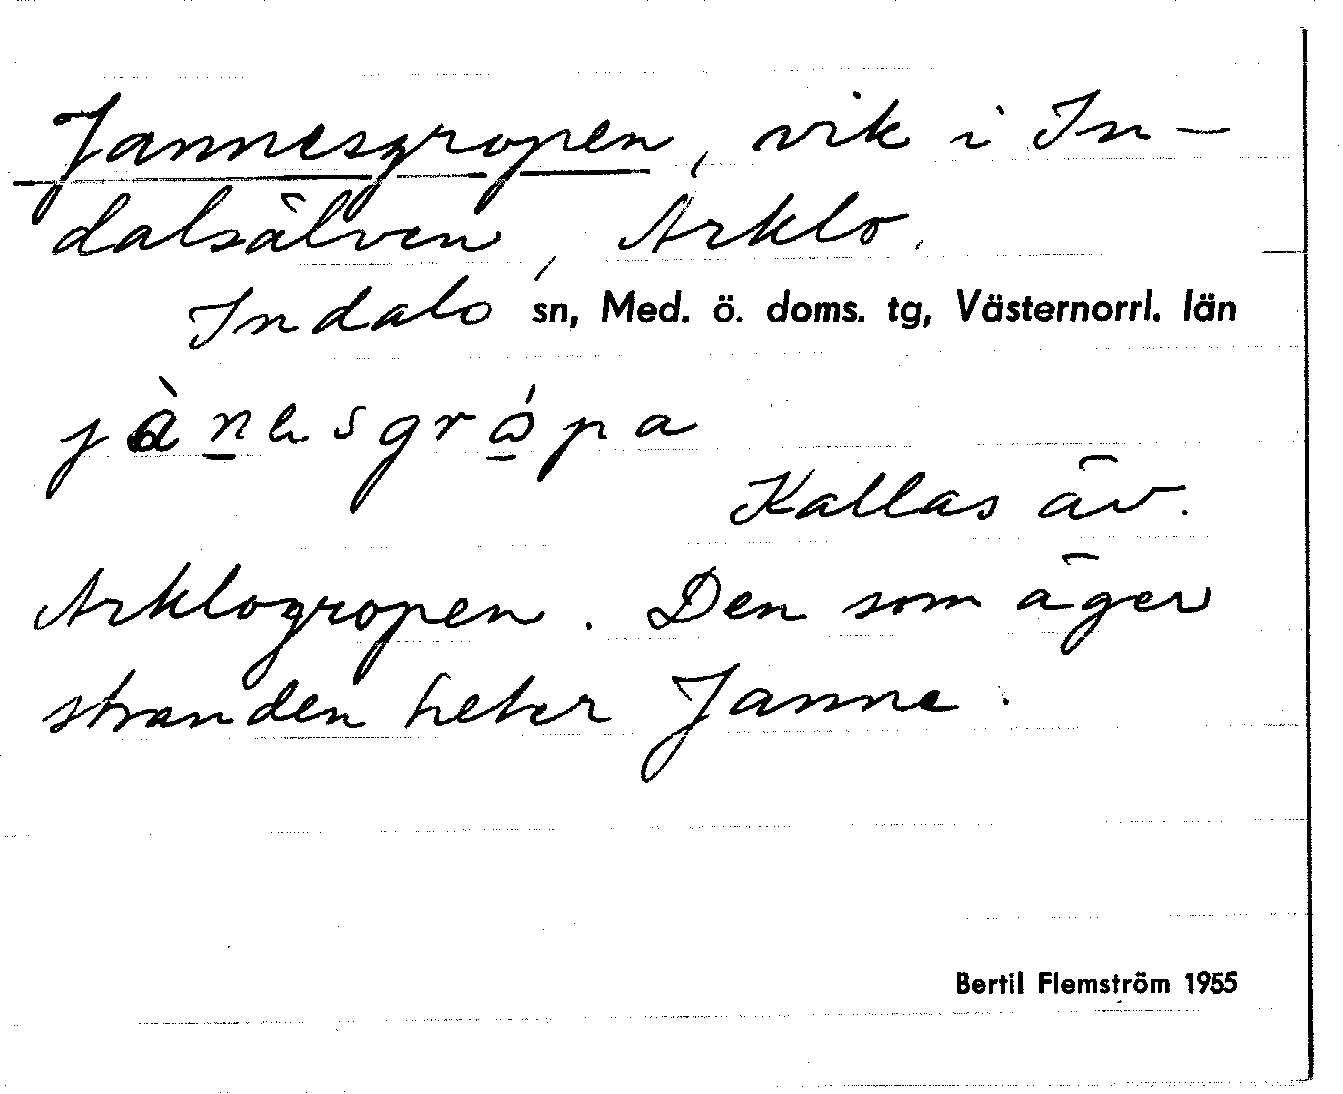 Jannesgropen, vik i In-
dalsälven, Arklo.
Indals sn, Med. ö. doms. tg, Västernorrl. län
jànesgrópa
Kallas äv.
Arklogropen. Den som äger
stranden heter Janne.
Bertil Flemström 1955